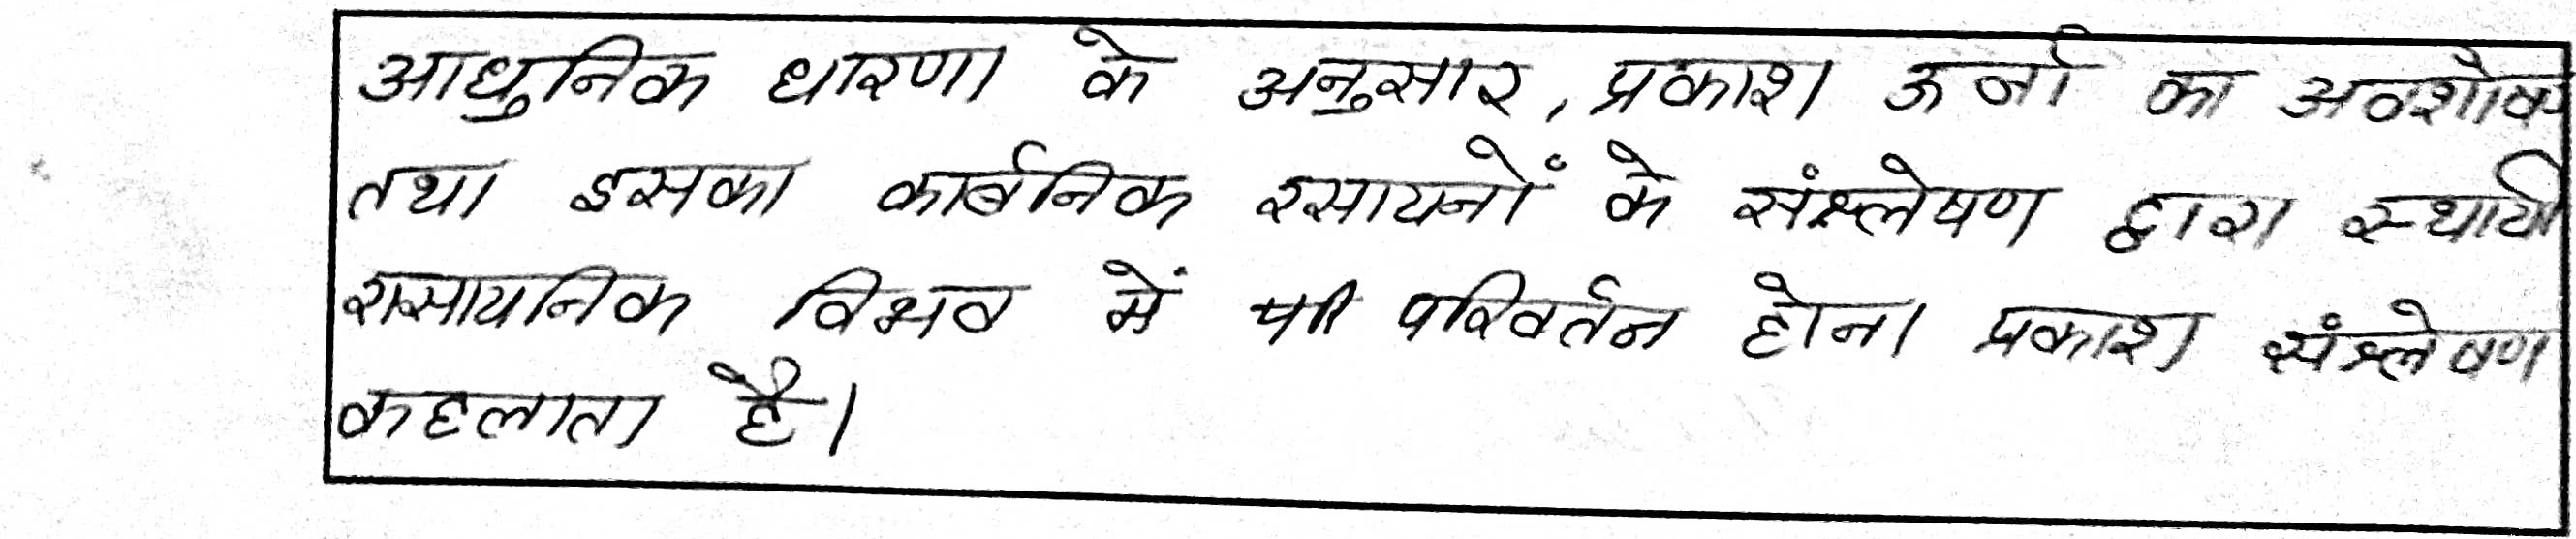 आधुनिक धारणा के अनुसार, प्रकाश ऊर्जा का अवशोषण
तथा इसका कार्बनिक रसायनों के संश्लेषण द्वारा स्थायी
रासायनिक विभव में परिवर्तन होना प्रकाश संश्लेषण
कहलाता है।